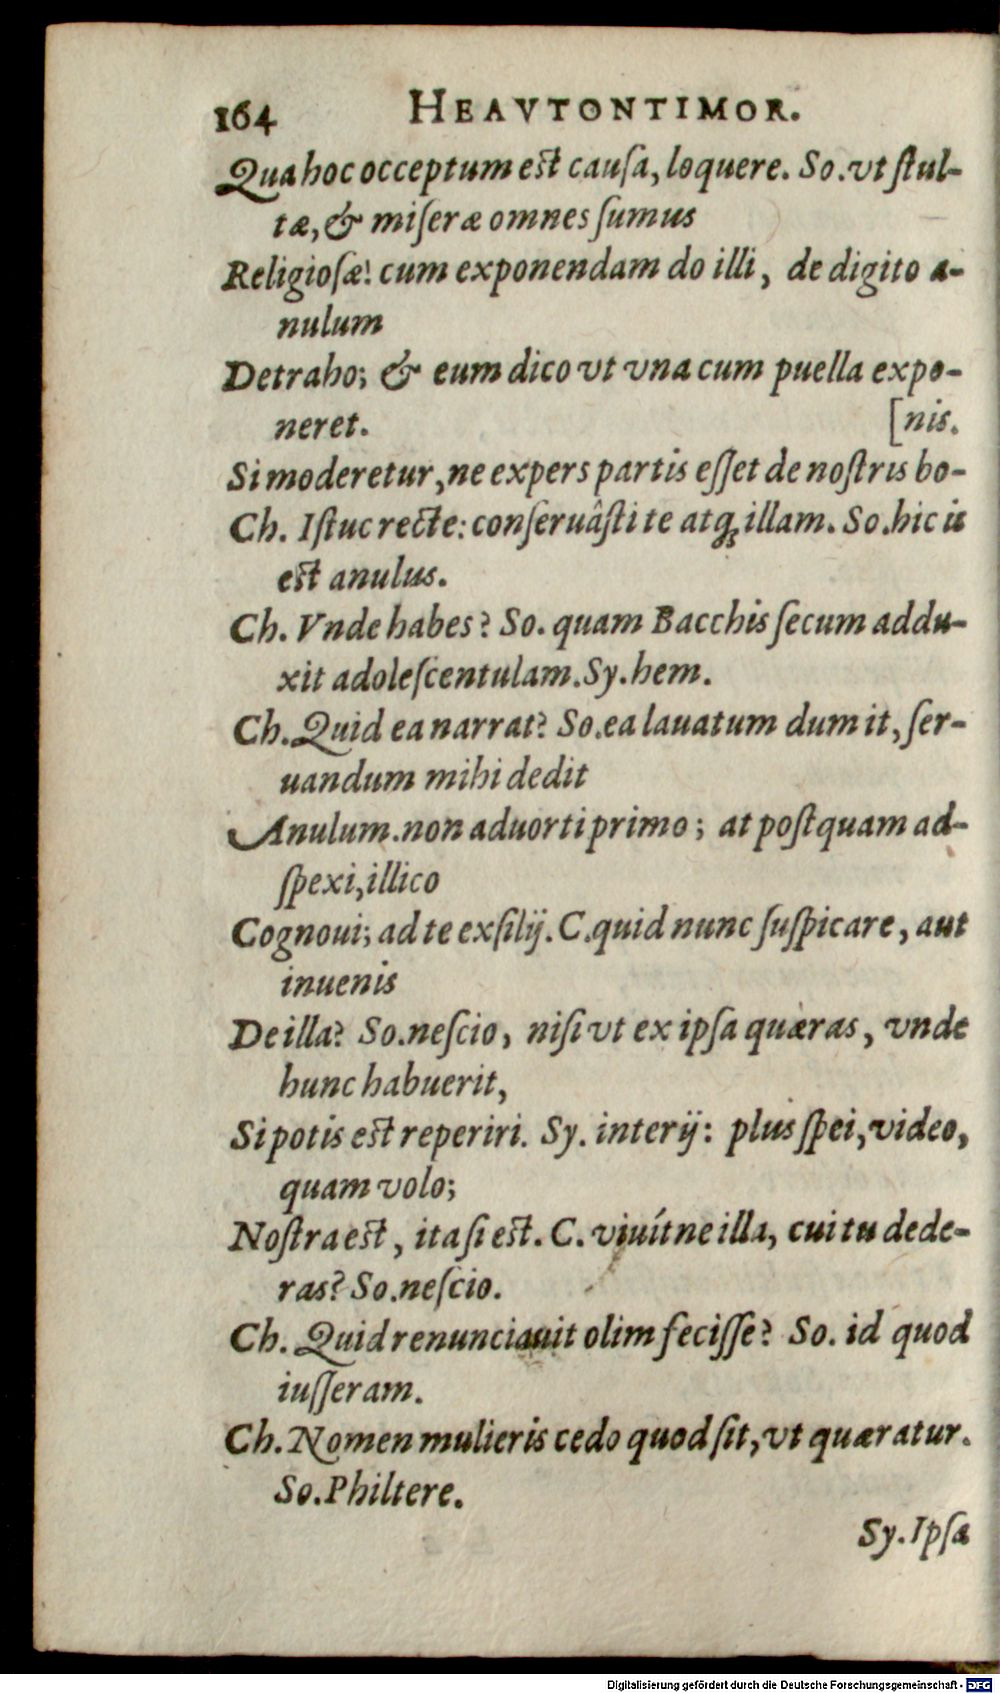 164 HEAVTONTIMOR.
Qua hoc occeptum est causa, loquere. So. vt ſtul-
tæ, & miſeræ omnes ſumus
Religioſæ! cum exponendam do illi, de digito a-
nulum
Detraho; & eum dico vt vna cum puella expo-
neret. [nis.
Si moderetur, ne expers partis eſſet de noſtris bo-
Ch. Iſtuc recte: conſeruâſti te atq; illam. So. hic is
est anulus.
Ch. Vnde habes? So. quam Bacchis ſecum addu-
xit adoleſcentulam. Sy. hem.
Ch. Quid ea narrat? So. ea lauatum dum it, ſer-
uandum mihi dedit
Anulum. non aduorti primo; at poſtquam ad-
ſpexi, illico
Cognoui; ad te exſilij. C. quid nunc ſuſpicare, aut
inuenis
De illa? So. neſcio, niſi vt ex ipſa quæras, vnde
hunc habuerit,
Si potis est reperiri. Sy. interij: plus ſpei, video,
quam volo;
Noſtra est, ita ſi est. C. viuítne illa, cui tu dede-
ras? So. neſcio.
Ch. Quid renunciauit olim feciſſe? So. id quod
iuſſeram.
Ch. Nomen mulieris cedo quod ſit, vt quæratur.
So. Philtere.
Sy. Ipſa
Digitalisierung gefördert durch die Deutsche Forschungsgemeinschaft - DFG